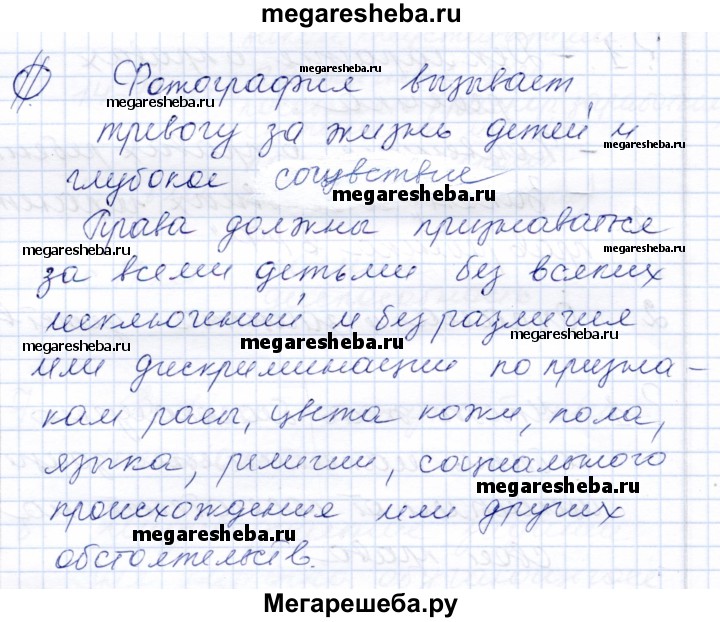 megaresheba.ru
1) Фотография вызывает
тревогу за жизнь детей и
глубокое сочувствие
Права должны признаваться
за всеми детьми без всяких
исключений и без различия
или дискриминации по призна-
кам расы, цвета кожи, пола,
языка, религии, социального
происхождения или других
обстоятельств.
megaresheba.ru
megaresheba.ru
megaresheba.ru
megaresheba.ru
megaresheba.ru
megaresheba.ru
megaresheba.ru
megaresheba.ru
megaresheba.ru
megaresheba.ru
megaresheba.ru
Мегарешеба.ру